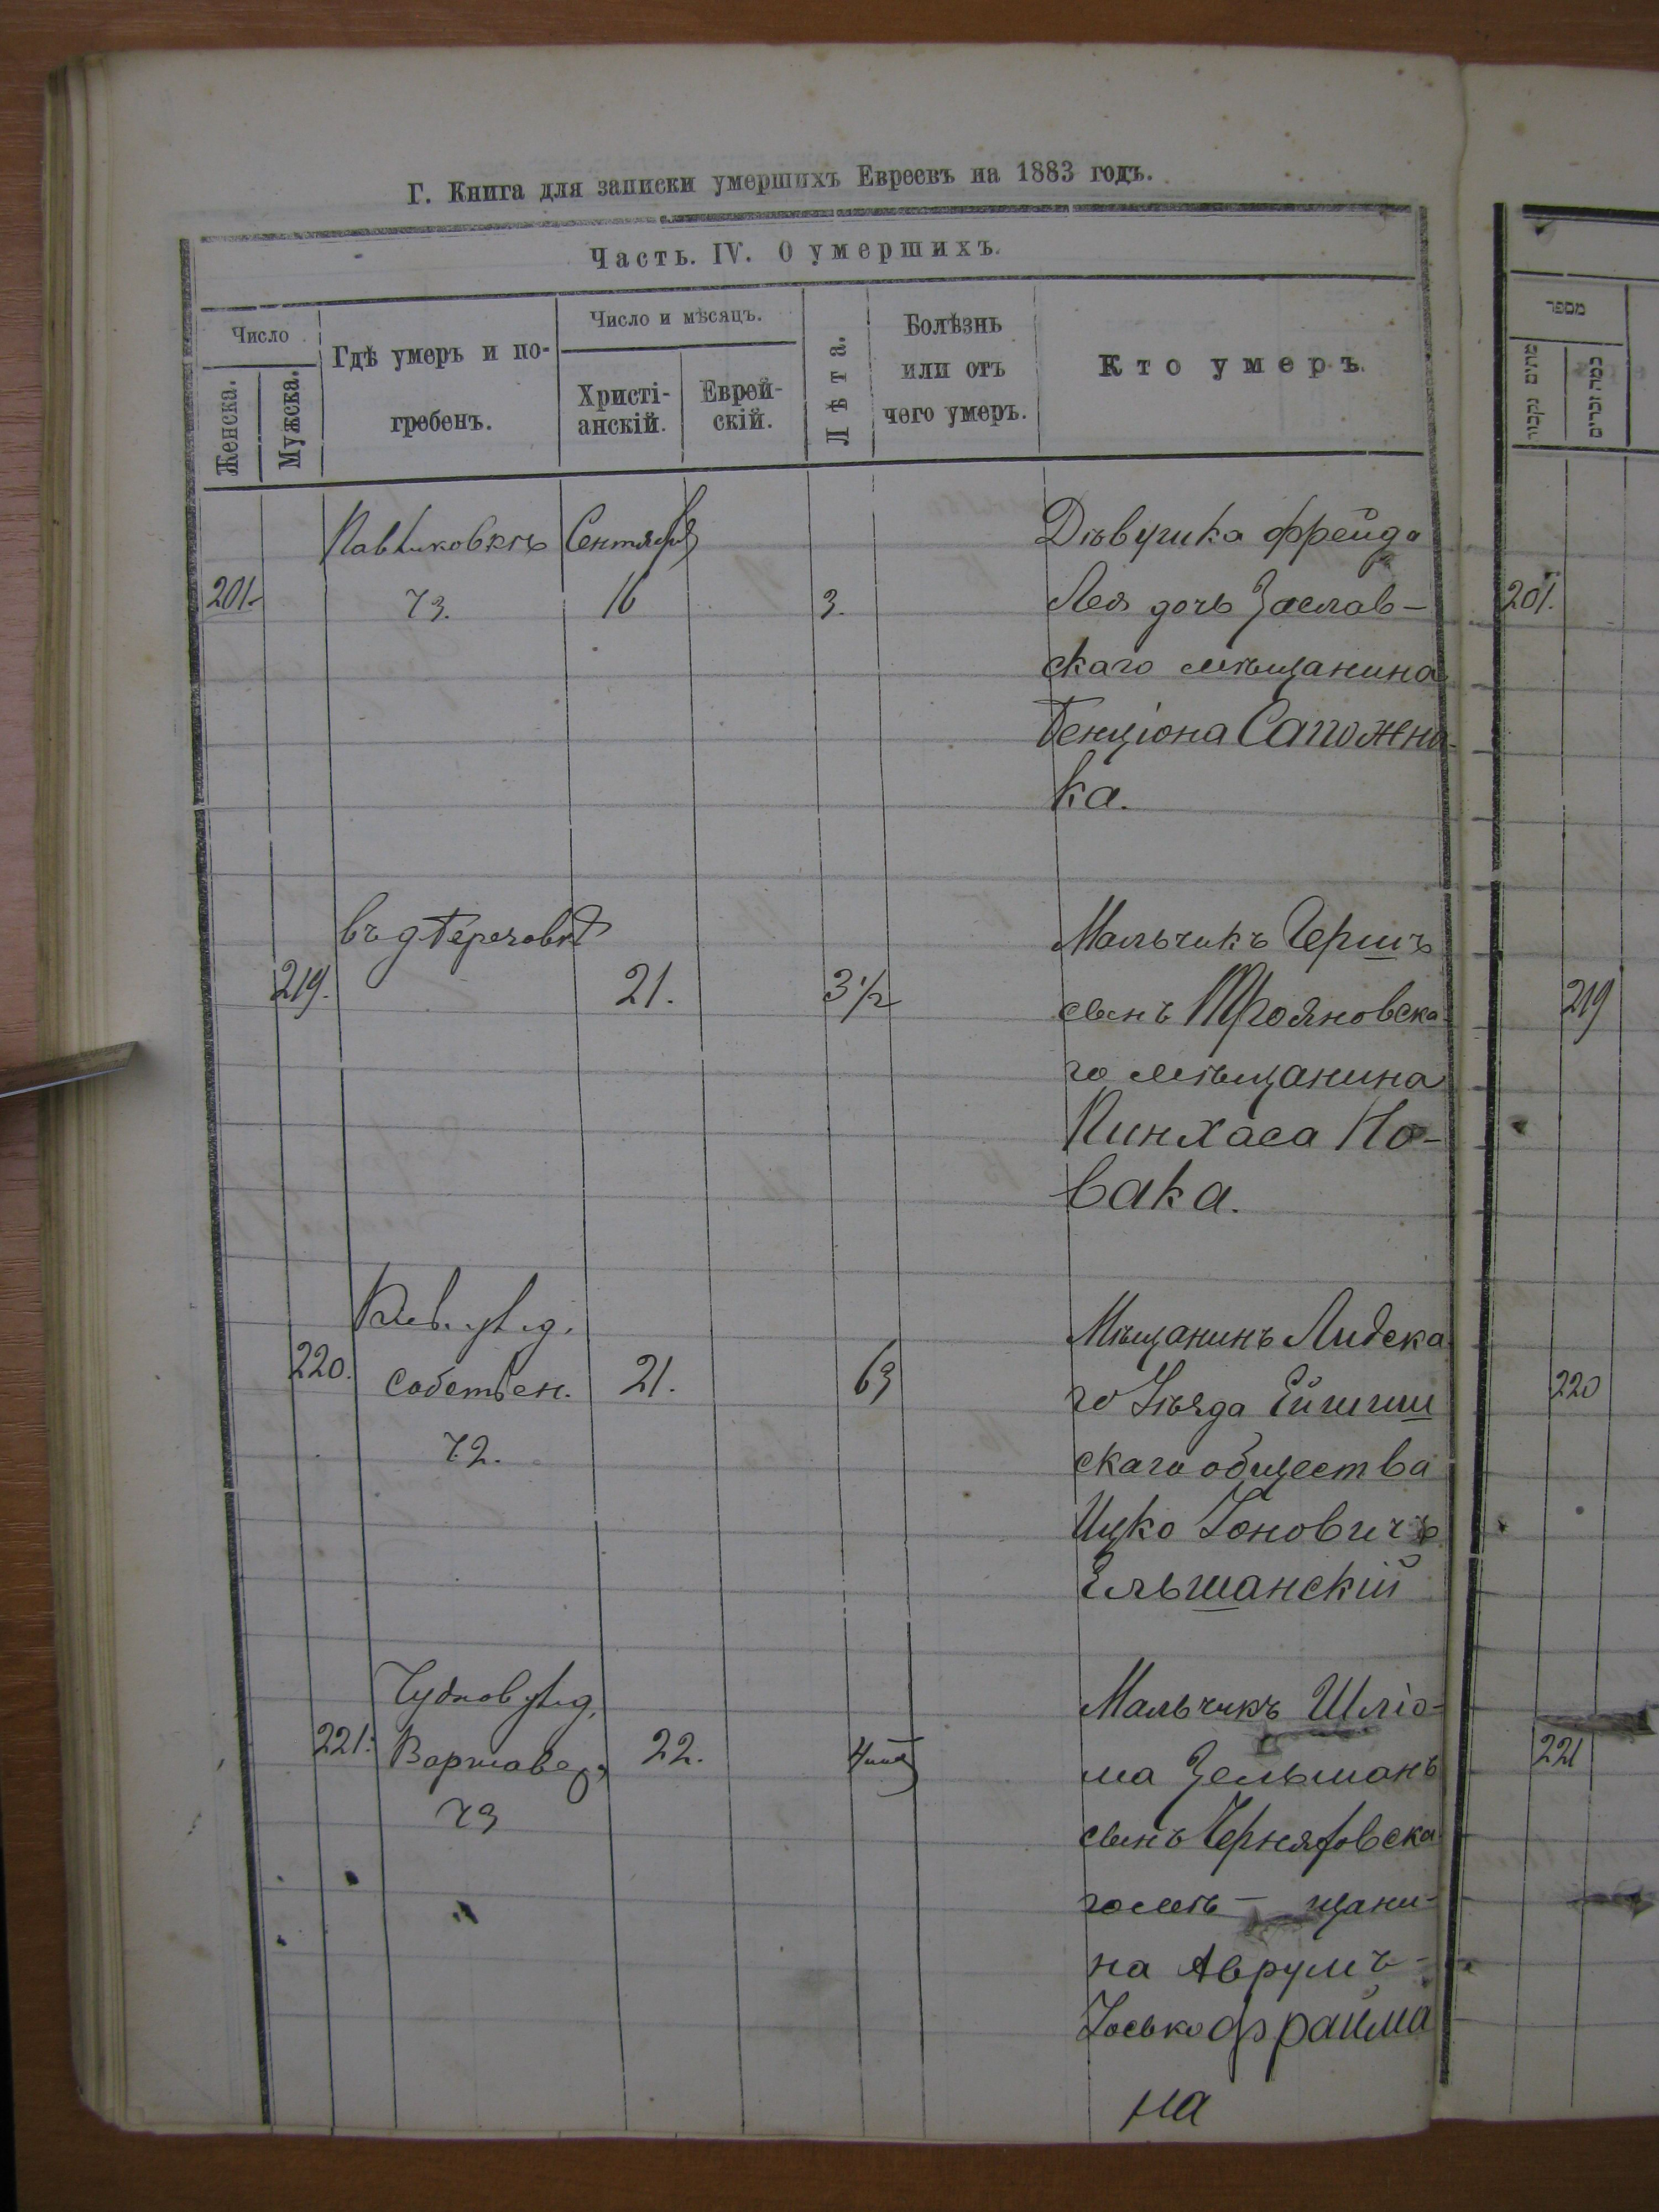 Г. Книга для записки умершихъ Евреевъ на 1883 годъ.
Часть. IV. О умершихъ.
Число
Женска.
Мужска.
Гдѣ умеръ и по-
гребенъ.
Число и мѣсяцъ.
Христі-
анскій.
Еврей-
скій.
Лѣта.
Болѣзнь
или отъ
чего умеръ.
Кто умеръ.
מספר
Сентября
201.
16
3.
Дѣвушка Фрейда
Лея дочь Заслав-
скаго мѣщанина
Бенціона Сапожни-
ка.
201.
въ д
219.
21.
3 1/2
Мальчикъ Гершъ
сынъ Трояновска-
го мѣщанина
Пинхаса Но-
вака.
219
220.
собствен.
21.
63
72.
Мѣщанинъ Лидска
го Уѣзда Ейшиш
скаго общества
Ицко Іоновичъ
Ельшанскій
220
Чуднов ул д.
221.
22.
73
Мальчикъ Шліо-
ма Зельманъ
сынъ Черняховска
го мѣ - щани-
на Аврумъ-
Іосько Фрайма
на
221